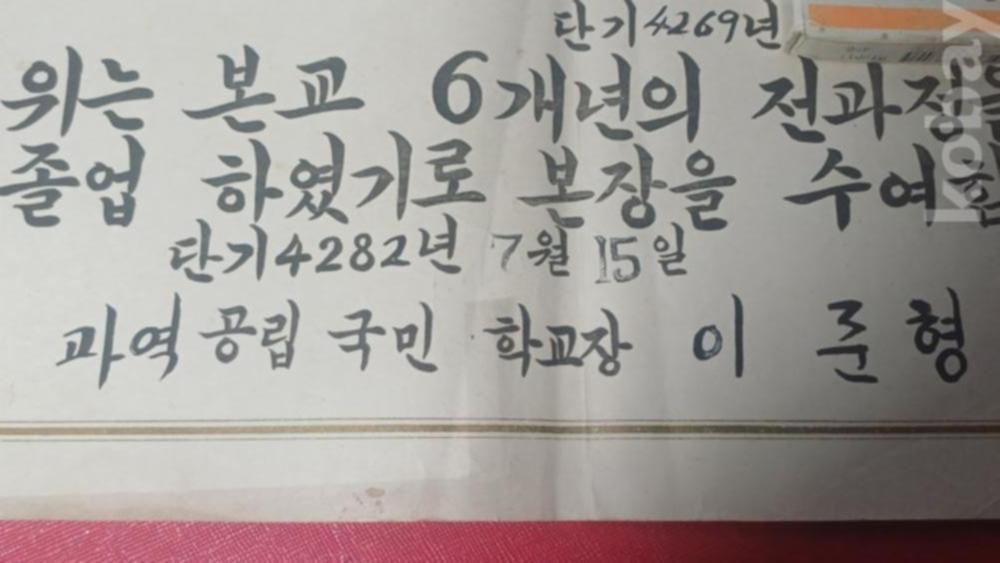 단기4269년
위는 본교 6개년의 전과정을
졸업 하였기로 본장을 수여함
단기4282년 7월 15일
과역 공립 국민 학교장 이 준 형
kobay